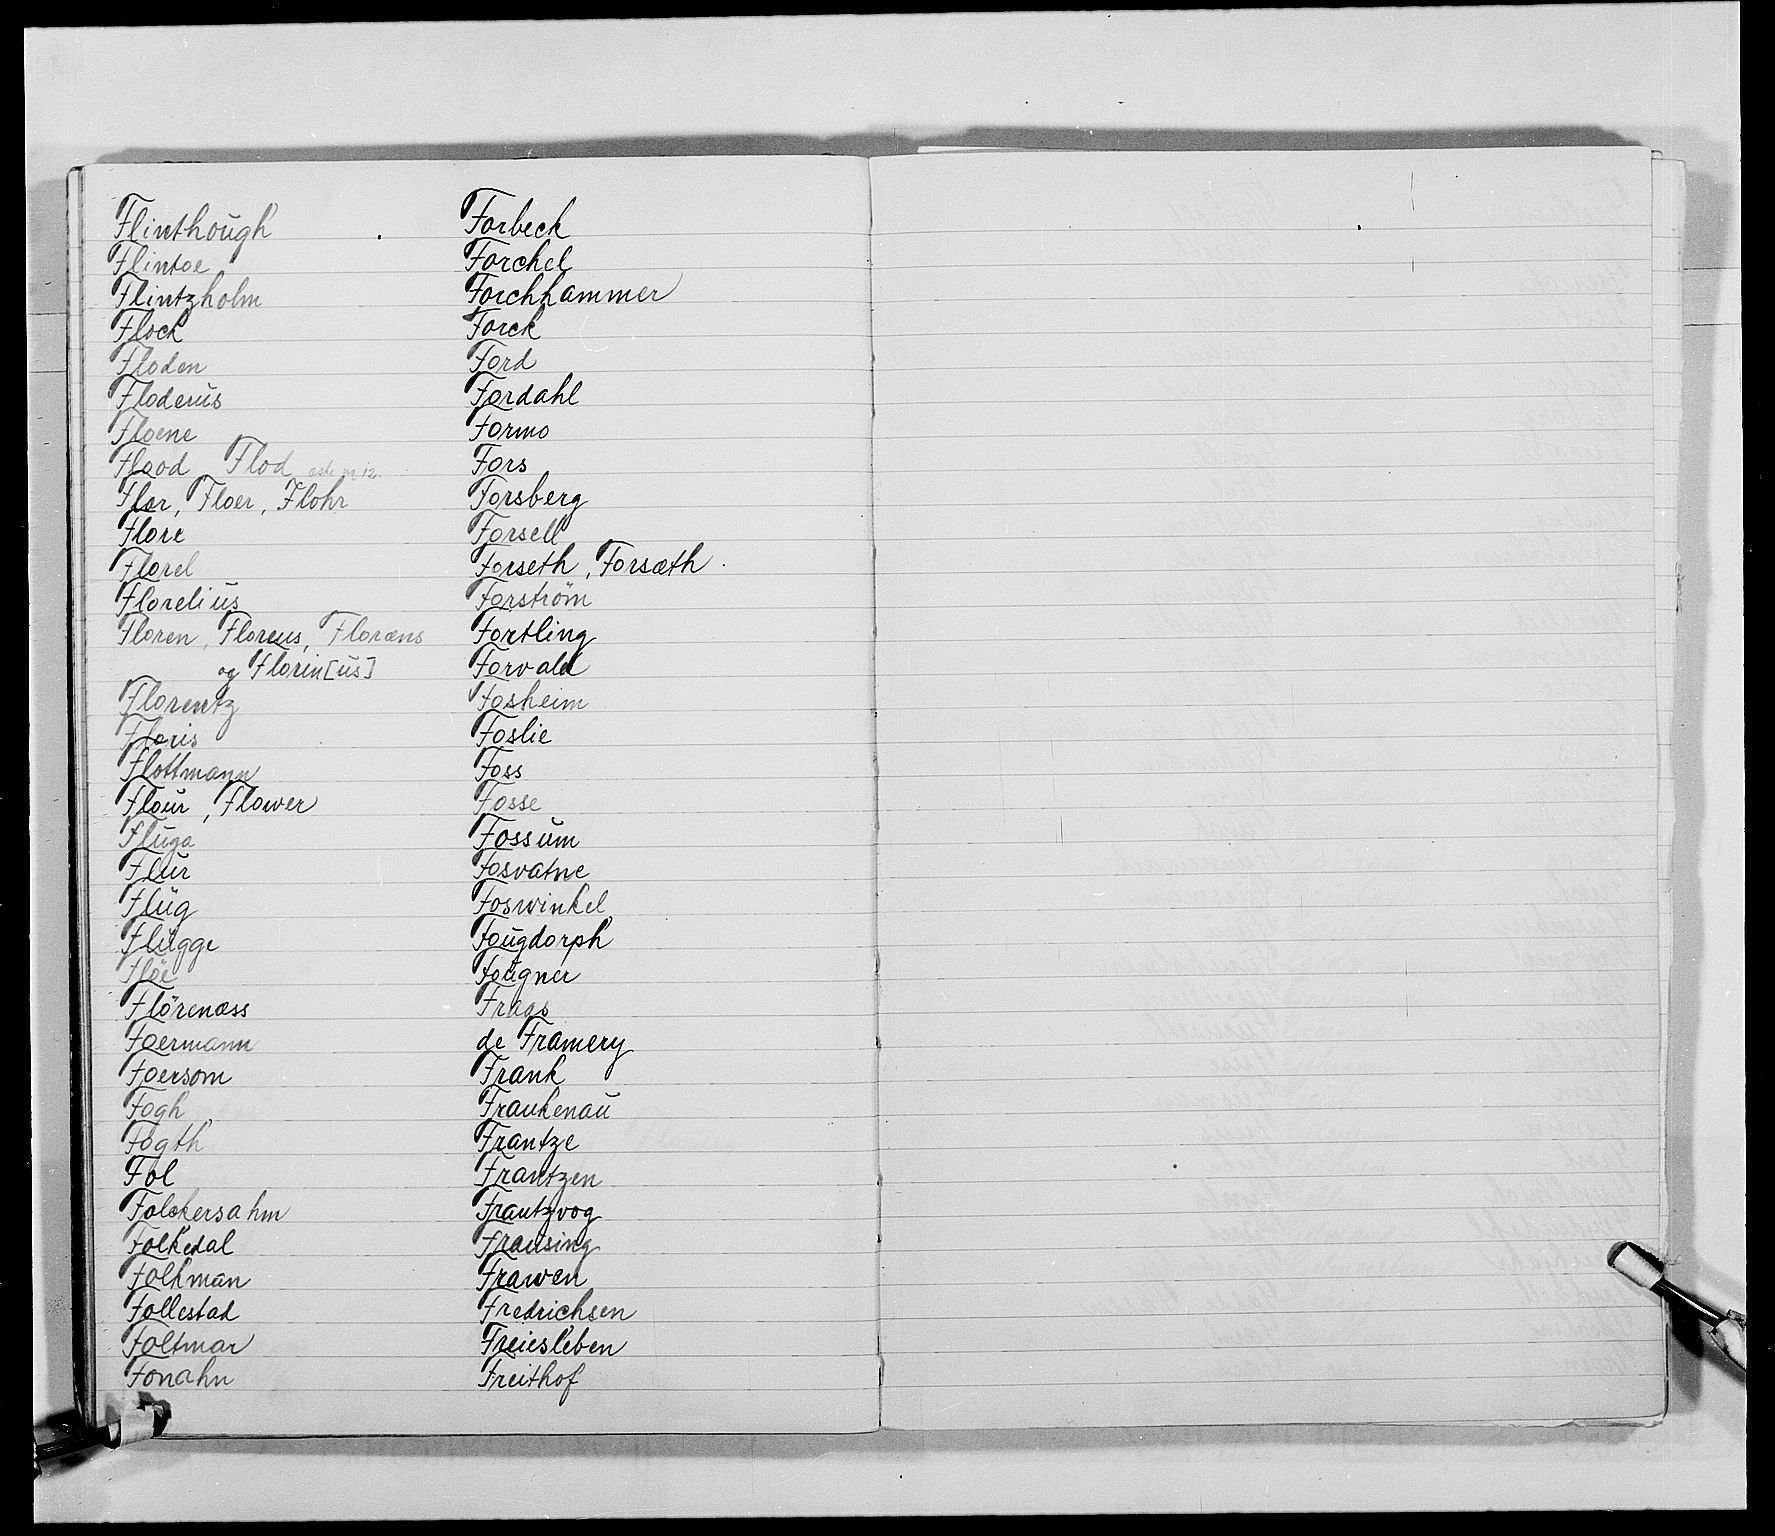 Flinthough
Flintoe
Flintzholm
Flock
Floden
Floderus
Floene
Flood Flod æske nr 12.
Flor, Floer, Flohr
Flore
Florel
Florelius
Floren, Floreus, Floræns
og Florin[us]
Florentz
Floris
Flottmann
Flour, Flower
Fluga
Flur
Flüg
Flügge
Flöe
Flörenæss
Foermann
Foersom
Fogh
Fogth
Fol
Folckersahm
Folkedal
Folkman
Follestad
Foltmar
Fonahn
Forbeck
Forchel
Forchhammer
Forck
Ford
Fordahl
Formo
Fors
Forsberg
Forsell
Forseth, Forsæth.
Forström
Fortling
Forvald
Fosheim
Foslie
Foss
Fosse
Fossum
Fosvatne
Foswinkel
Fougdorph
Fougner
Fraas
de Framery
Frank
Frankenau
Frantze
Frantzen
Frantzvog
Fransing
Frawen
Fredrichsen
Freiesleben
Freithof